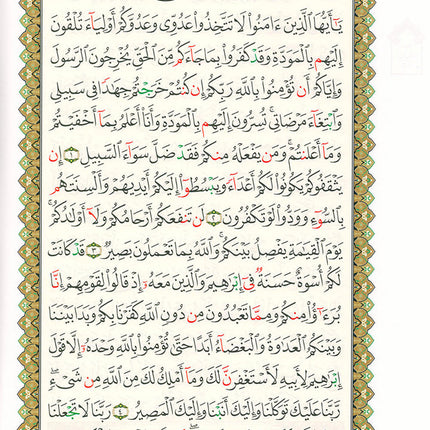 يَـٰٓأَيُّهَا ٱلَّذِينَ ءَامَنُوا۟ لَا تَتَّخِذُوا۟ عَدُوِّى وَعَدُوَّكُمْ أَوْلِيَآءَ تُلْقُونَ
إِلَيْهِم بِٱلْمَوَدَّةِ وَقَدْ كَفَرُوا۟ بِمَا جَآءَكُم مِّنَ ٱلْحَقِّ يُخْرِجُونَ ٱلرَّسُولَ
وَإِيَّاكُمْ أَن تُؤْمِنُوا۟ بِٱللَّهِ رَبِّكُمْ إِن كُنتُمْ خَرَجْتُمْ جِهَـٰدًا فِى سَبِيلِى
وَٱبْتِغَآءَ مَرْضَاتِى تُسِرُّونَ إِلَيْهِم بِٱلْمَوَدَّةِ وَأَنَا۠ أَعْلَمُ بِمَآ أَخْفَيْتُمْ
وَمَآ أَعْلَنتُمْ وَمَن يَفْعَلْهُ مِنكُمْ فَقَدْ ضَلَّ سَوَآءَ ٱلسَّبِيلِ ١ إِن
يَثْقَفُوكُمْ يَكُونُوا۟ لَكُمْ أَعْدَآءً وَيَبْسُطُوٓا۟ إِلَيْكُمْ أَيْدِيَهُمْ وَأَلْسِنَتَهُم
بِٱلسُّوٓءِ وَوَدُّوا۟ لَوْ تَكْفُرُونَ ٢ لَن تَنفَعَكُمْ أَرْحَامُكُمْ وَلَآ أَوْلَـٰدُكُمْ
يَوْمَ ٱلْقِيَـٰمَةِ يَفْصِلُ بَيْنَكُمْ وَٱللَّهُ بِمَا تَعْمَلُونَ بَصِيرٌ ٣ قَدْ كَانَتْ
لَكُمْ أُسْوَةٌ حَسَنَةٌ فِىٓ إِبْرَٰهِيمَ وَٱلَّذِينَ مَعَهُۥٓ إِذْ قَالُوا۟ لِقَوْمِهِمْ إِنَّا
بُرَءَٰٓؤُا۟ مِنكُمْ وَمِمَّا تَعْبُدُونَ مِن دُونِ ٱللَّهِ كَفَرْنَا بِكُمْ وَبَدَا بَيْنَنَا
وَبَيْنَكُمُ ٱلْعَدَٰوَةُ وَٱلْبَغْضَآءُ أَبَدًا حَتَّىٰ تُؤْمِنُوا۟ بِٱللَّهِ وَحْدَهُۥٓ إِلَّا قَوْلَ
إِبْرَٰهِيمَ لِأَبِيهِ لَأَسْتَغْفِرَنَّ لَكَ وَمَآ أَمْلِكُ لَكَ مِنَ ٱللَّهِ مِن شَىْءٍ
رَّبَّنَا عَلَيْكَ تَوَكَّلْنَا وَإِلَيْكَ أَنَبْنَا وَإِلَيْكَ ٱلْمَصِيرُ ٤ رَبَّنَا لَا تَجْعَلْنَا